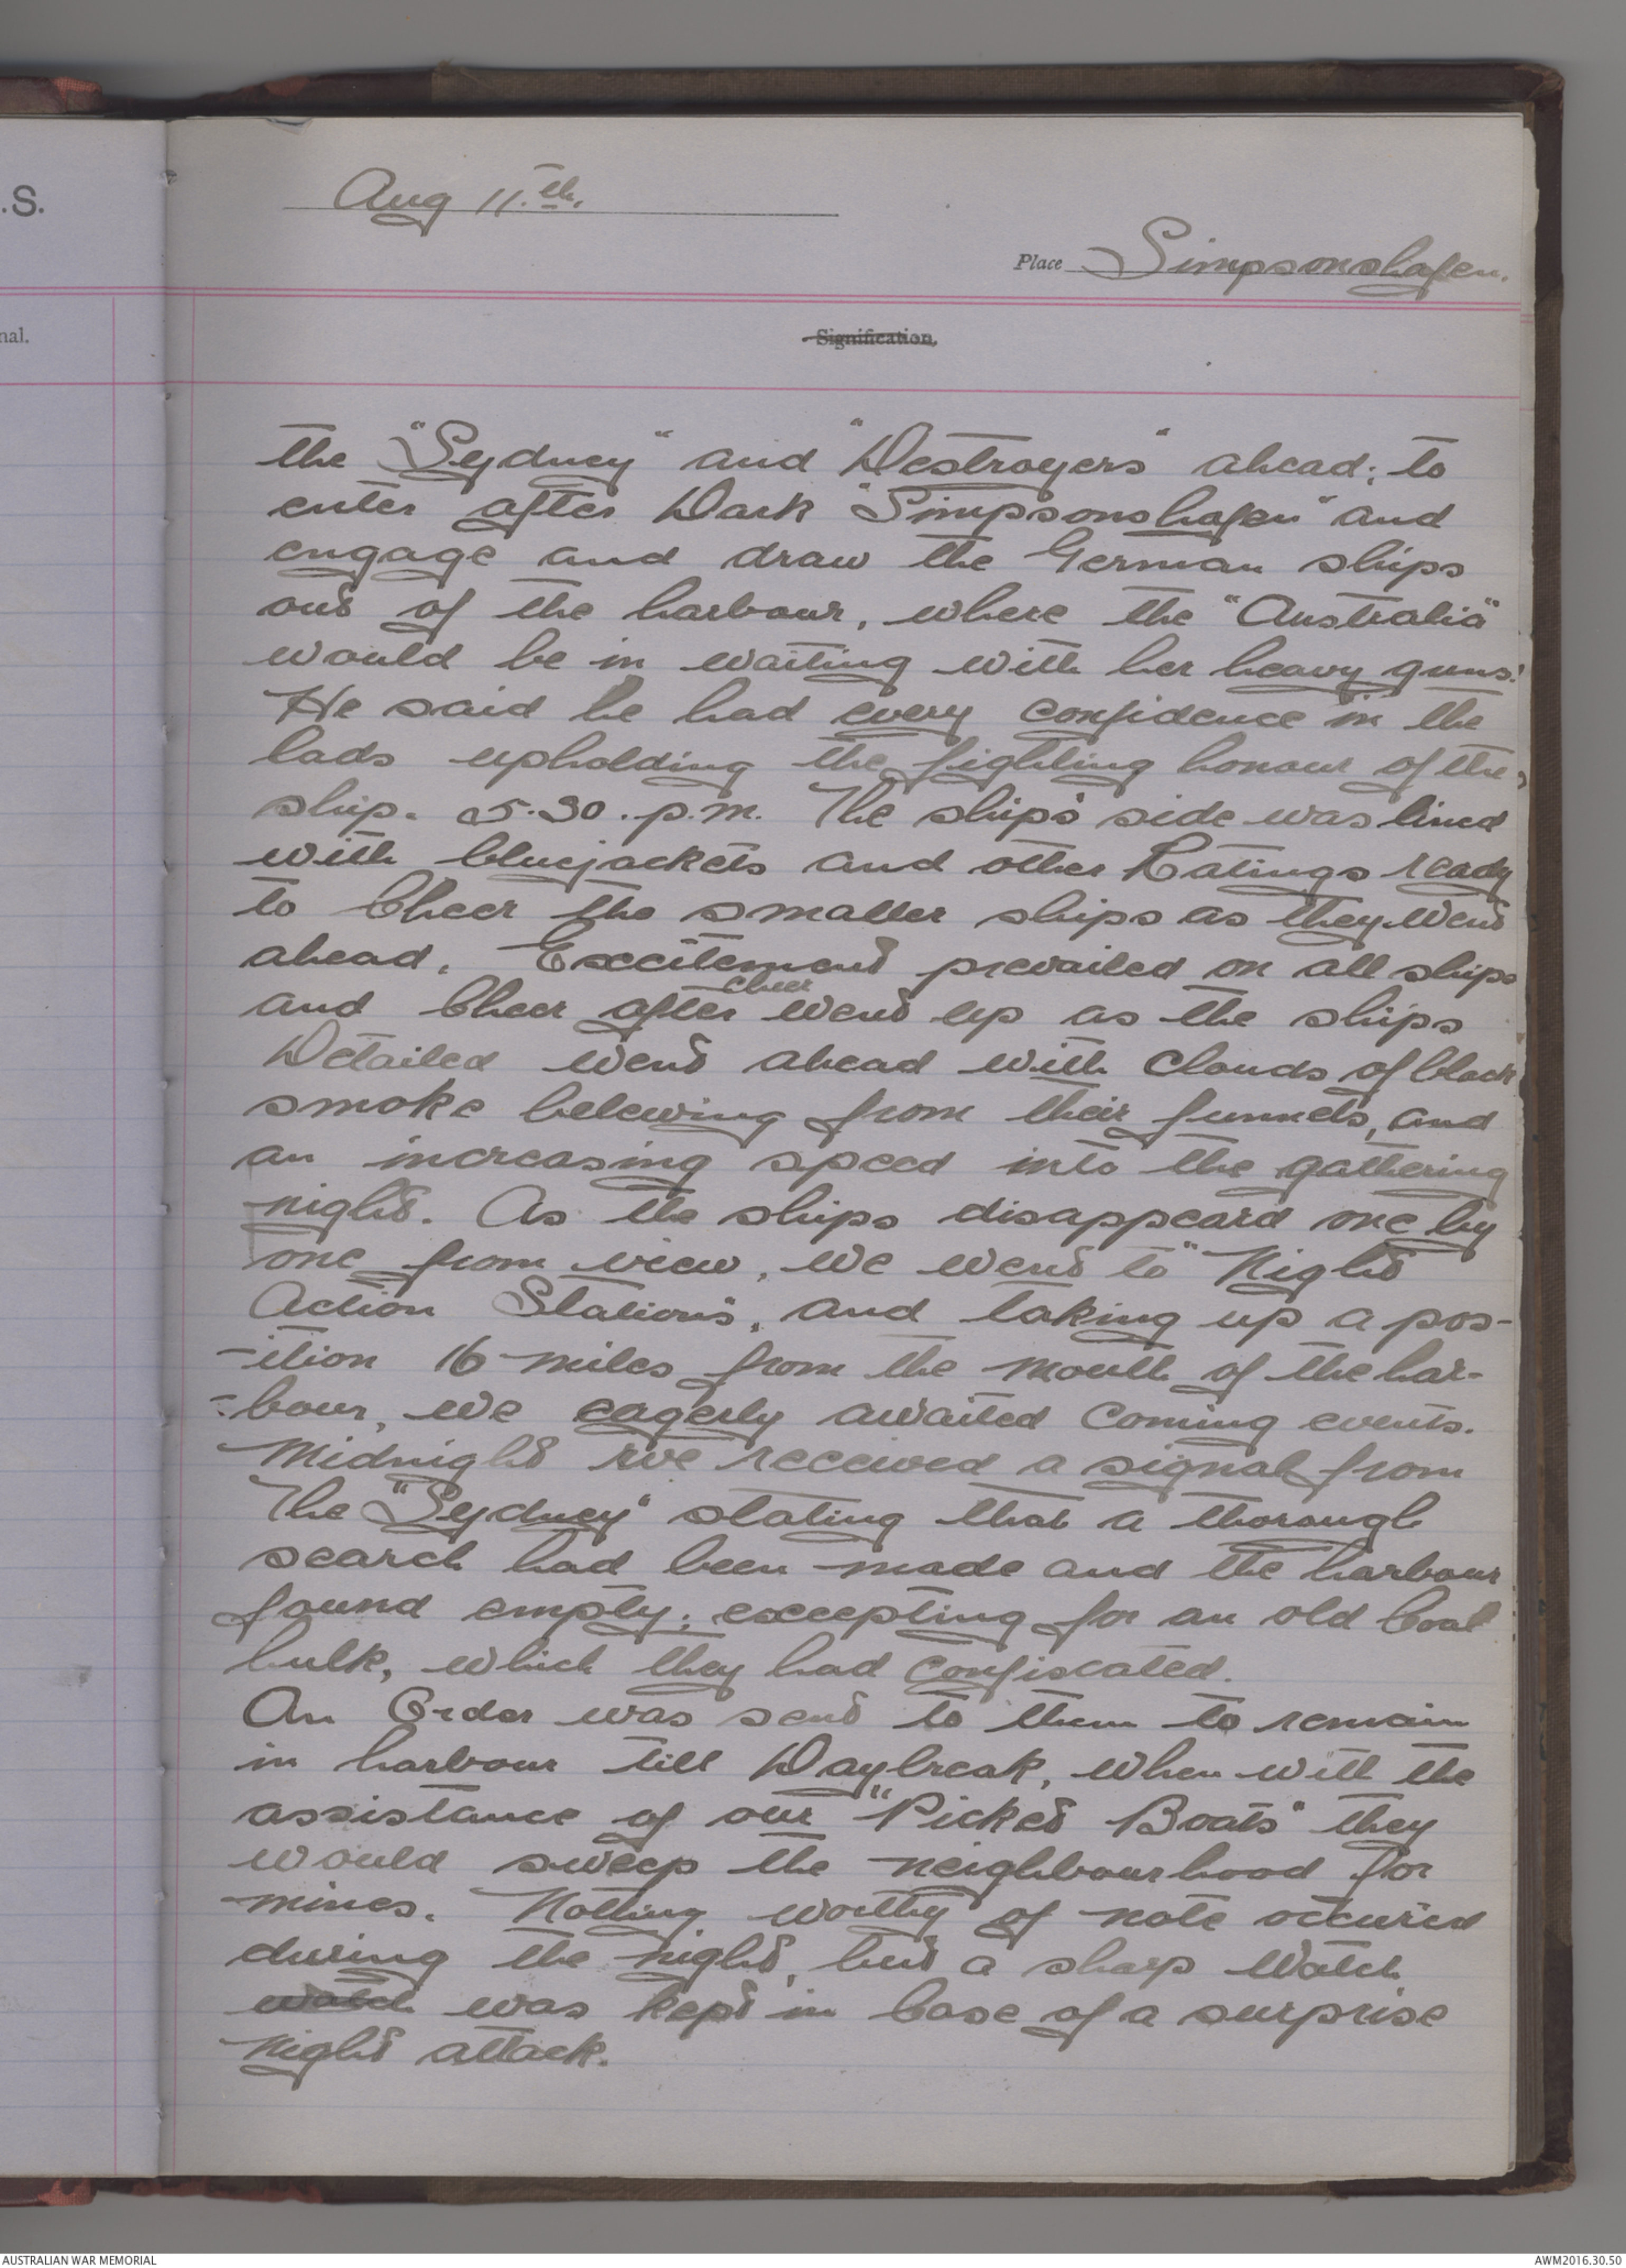 .S.
nal.
Aug 11.th.
Place Simpsonshafen.
Signification.
the "Sydney" and "Destroyers" ahead; to
enter after Dark "Simpsonshafen" and
engage and draw the German ships
out of the harbour, where the "Australia"
would be in waiting with her heavy guns.
He said he had every confidence in the
lads upholding the fighting honour of the
ship. 5.30.p.m. The ship's side was lined
with bluejackets and other Ratings ready
to Cheer the smaller ships as they went
ahead. Excitement prevailed on all ships
and Cheer after cheer went up as the ships
Detailed went ahead with Clouds of black
smoke belewing from their funnels, and
an increasing speed into the gathering
night. As the ships disappeard one by
one from view, we went to "Night
Action Stations", and taking up a pos-
-ition 16 miles from the mouth of the har-
-bour, we eagerly awaited Coming events.
Midnight we received a signal from
The "Sydney" stating that a thorough
search had been made and the harbour
found empty; excepting for an old Coal
hulk, which they had confiscated.
An Order was sent to them to remain
in harbour till Daybreak, when with the
assistance of our "Picket Boats" they
would sweep the neighbourhood for
mines. Nothing worthy of note occured
during the night, but a sharp Watch
watch was kept in Case of a surprise
night attack.
AUSTRALIAN WAR MEMORIAL
AWM2016.30.50